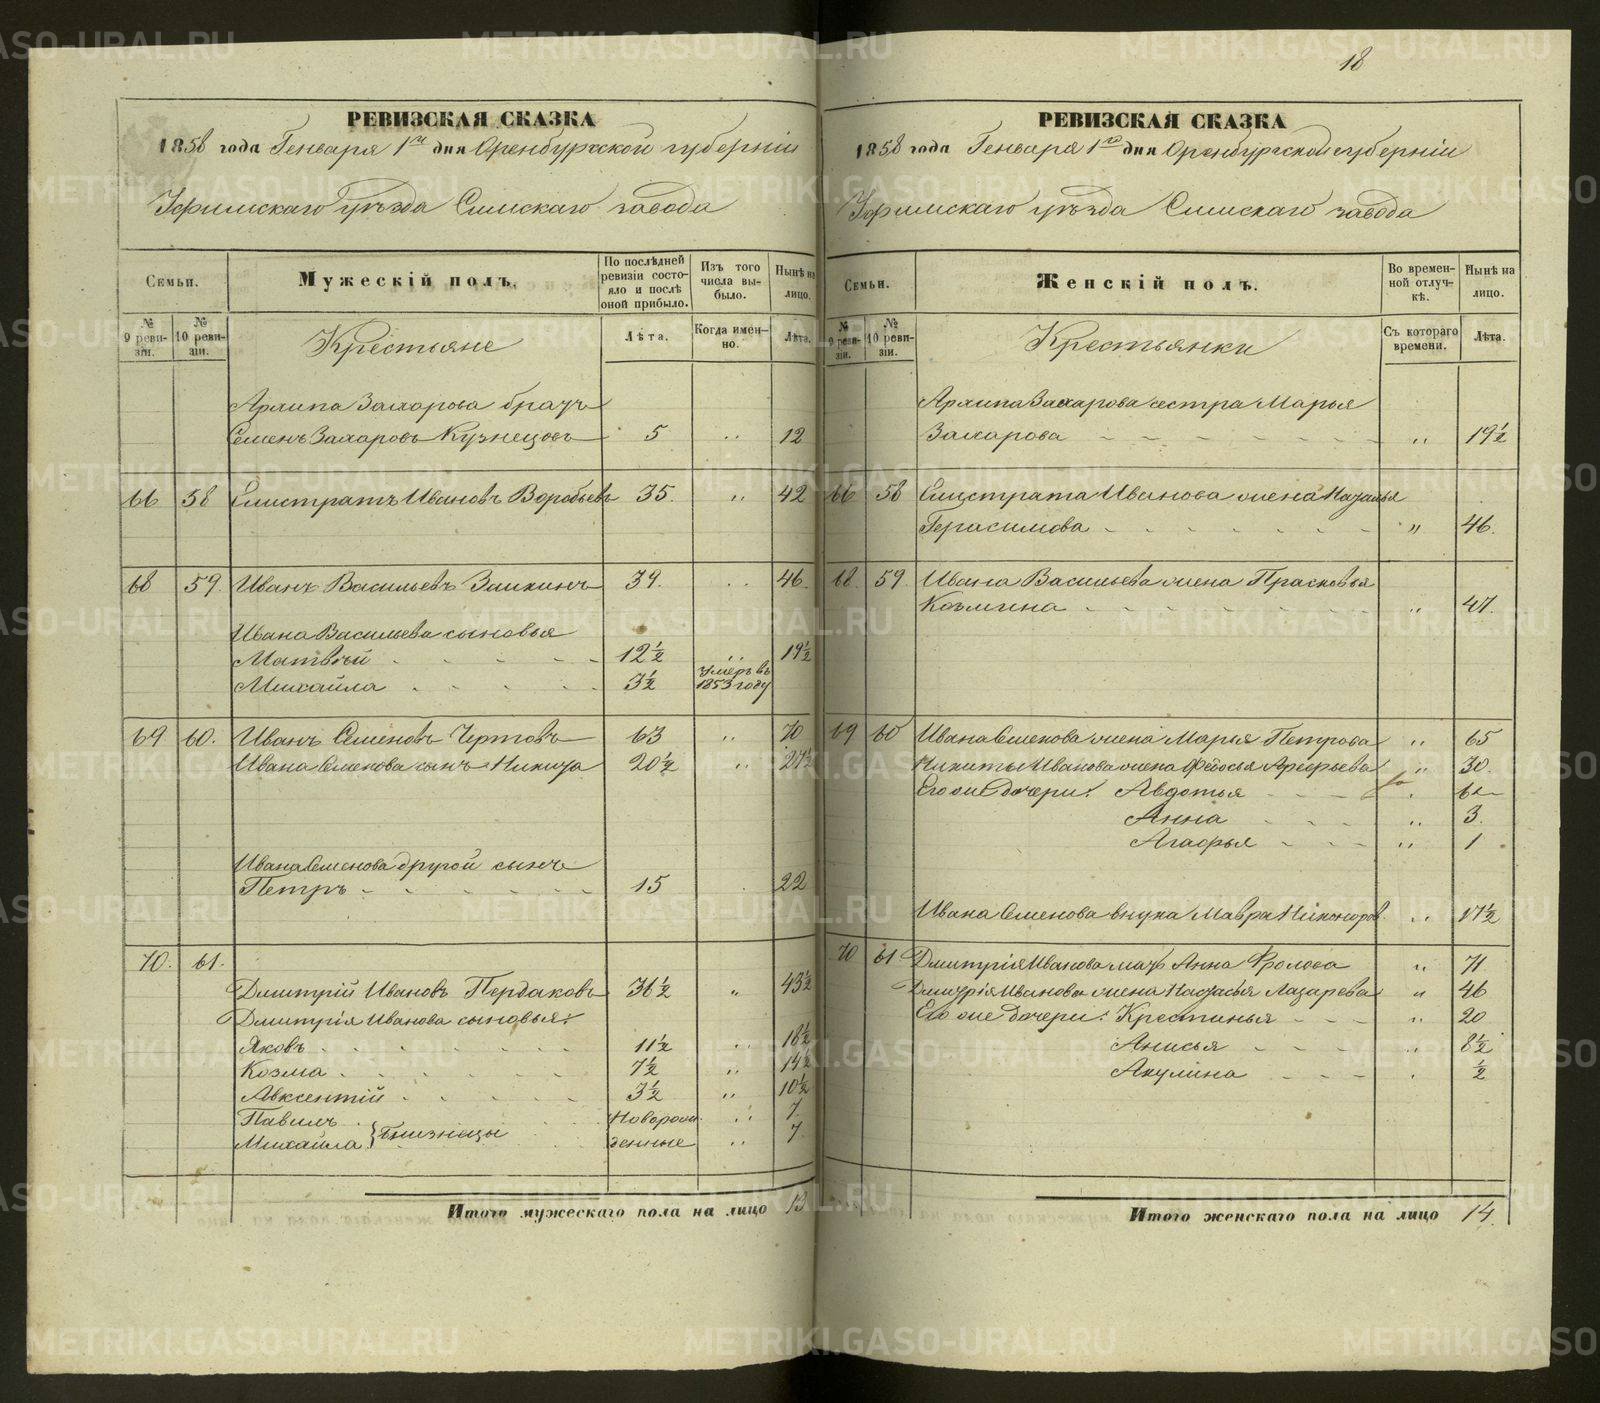 18
РЕВИЗСКАЯ СКАЗКА
1858 года Генваря 1го дня Оренбургской губерніи
Уфимскаго уѣзда Симскаго завода
Семьи.
Мужескій полъ.
По послѣдней ревизіи состояло и послѣ оной прибыло.
Изъ того числа выбыло.
Нынѣ на лицо.
№ 9 ревизіи.
№ 10 ревизіи.
Крестьяне
Лѣта.
Когда именно.
Лѣта.
Архипа Захарова братъ
Семенъ Захаровъ Кузнецовъ 5 „ 12
66 58 Елистратъ Ивановъ Воробьевъ 35. „ 42
68 59. Иванъ Васильевъ Заикинъ 39. „ 46.
Ивана Васильева сыновья
Матвѣй 12½ „ 19½
Михайла 3½ умеръ въ 1853 году
69 60. Иванъ Семеновъ Чертовъ 63 „ 70
Ивана Семенова сынъ Никита 20½ „ 27½
Ивана Семенова другой сынъ
Петръ 15 22
70. 61.
Дмитрій Ивановъ Пердаковъ 36½ „ 43½
Дмитрія Иванова сыновья:
Яковъ 11½ „ 18½
Козма 7½ „ 14½
Авксентій 3½ „ 10½
Павелъ Новорож „ 7.
Михайла } Близнецы денные „ 7.
Итого мужескаго пола на лицо 13
РЕВИЗСКАЯ СКАЗКА
1858 года Генваря 1го дня Оренбургской губерніи
Уфимскаго уѣзда Симскаго завода
Семьи.
Женскій полъ.
Во временной отлучкѣ.
Нынѣ на лицо.
№ 9 ревизіи.
№ 10 ревизіи.
Крестьянки
Съ котораго времени.
Лѣта.
Архипа Захарова сестра Марья
Захарова „ 19½
66 58 Елистрата Иванова жена Наталья
Герасимова „ 46.
68 59. Ивана Васильева жена Прасковья
Козмина „ 47.
69 60 Ивана Семенова жена Марья Петрова „ 65
Никиты Иванова жена Федосья Арефьева „ 30.
Его же дочери: Авдотья
Анна „ 3.
Агафья „ 1
Ивана Семенова внука Мавра Никоноров „ 17½
70 61 Дмитрія Иванова мать Анна Фролова „ 71
Дмитрія Иванова жена Настасья Лазарева „ 46
Его же дочери: Крестинья „ 20
Анисья „ 8½
Акулина „ ½
Итого женскаго пола на лицо 14.
METRIKI.GASO-URAL.RU